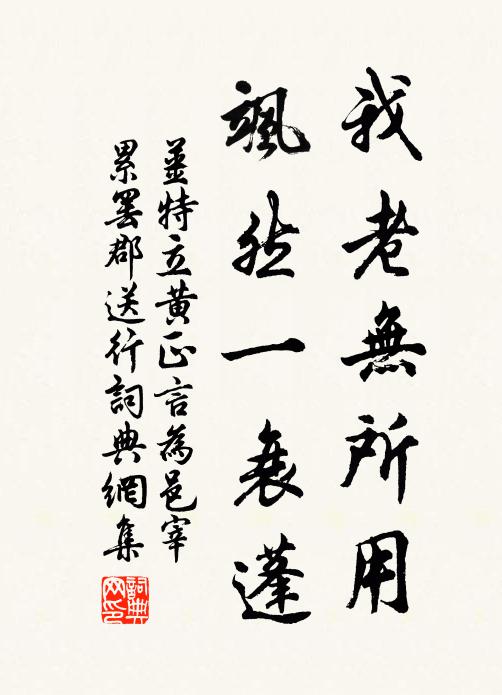 我老無所用
颯然一衰蓬
姜特立黄正言為邑宰
累罢郡送行詞典網集
詞典网印